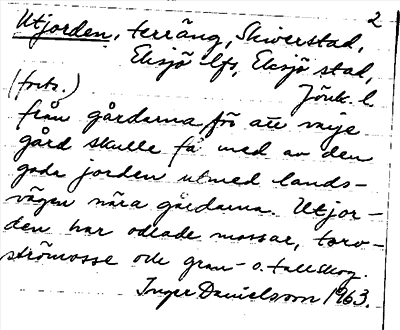 2
Utjorden, terräng, Skiverstad,
Eksjö lfs, Eksjö stad,
Jönk. l.
(forts.)
från gårdarna för att varje
gård skulle få med av den
goda jorden utmed lands-
vägen nära gårdarna. Utjor-
den har odlade mossar, torv-
strömosse och gran- o. tallskog.
Inger Danielsson 1963.